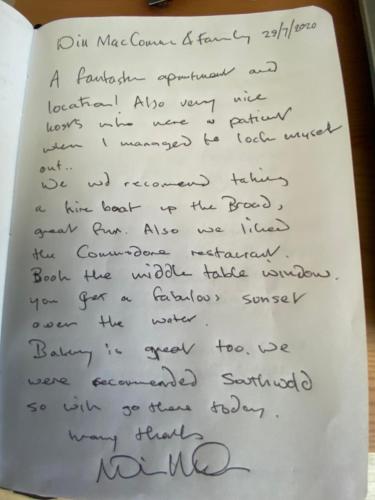 Will MacComm & Family 29/7/2020
A fantastic apartment and
location! Also very nice
hosts who were so patient
when I managed to lock myself
out..
We wd recomend taking
a hire boat up the Broad,
great fun. Also we liked
the Commodore restaurant.
Book the middle table window.
you get a fabulous sunset
over the water.
Bakery is great too. We
were recommended Southwold
so will go there today.
many thanks